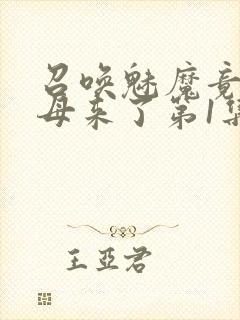 召唤魅魔竟
母来了第1集
王亚君